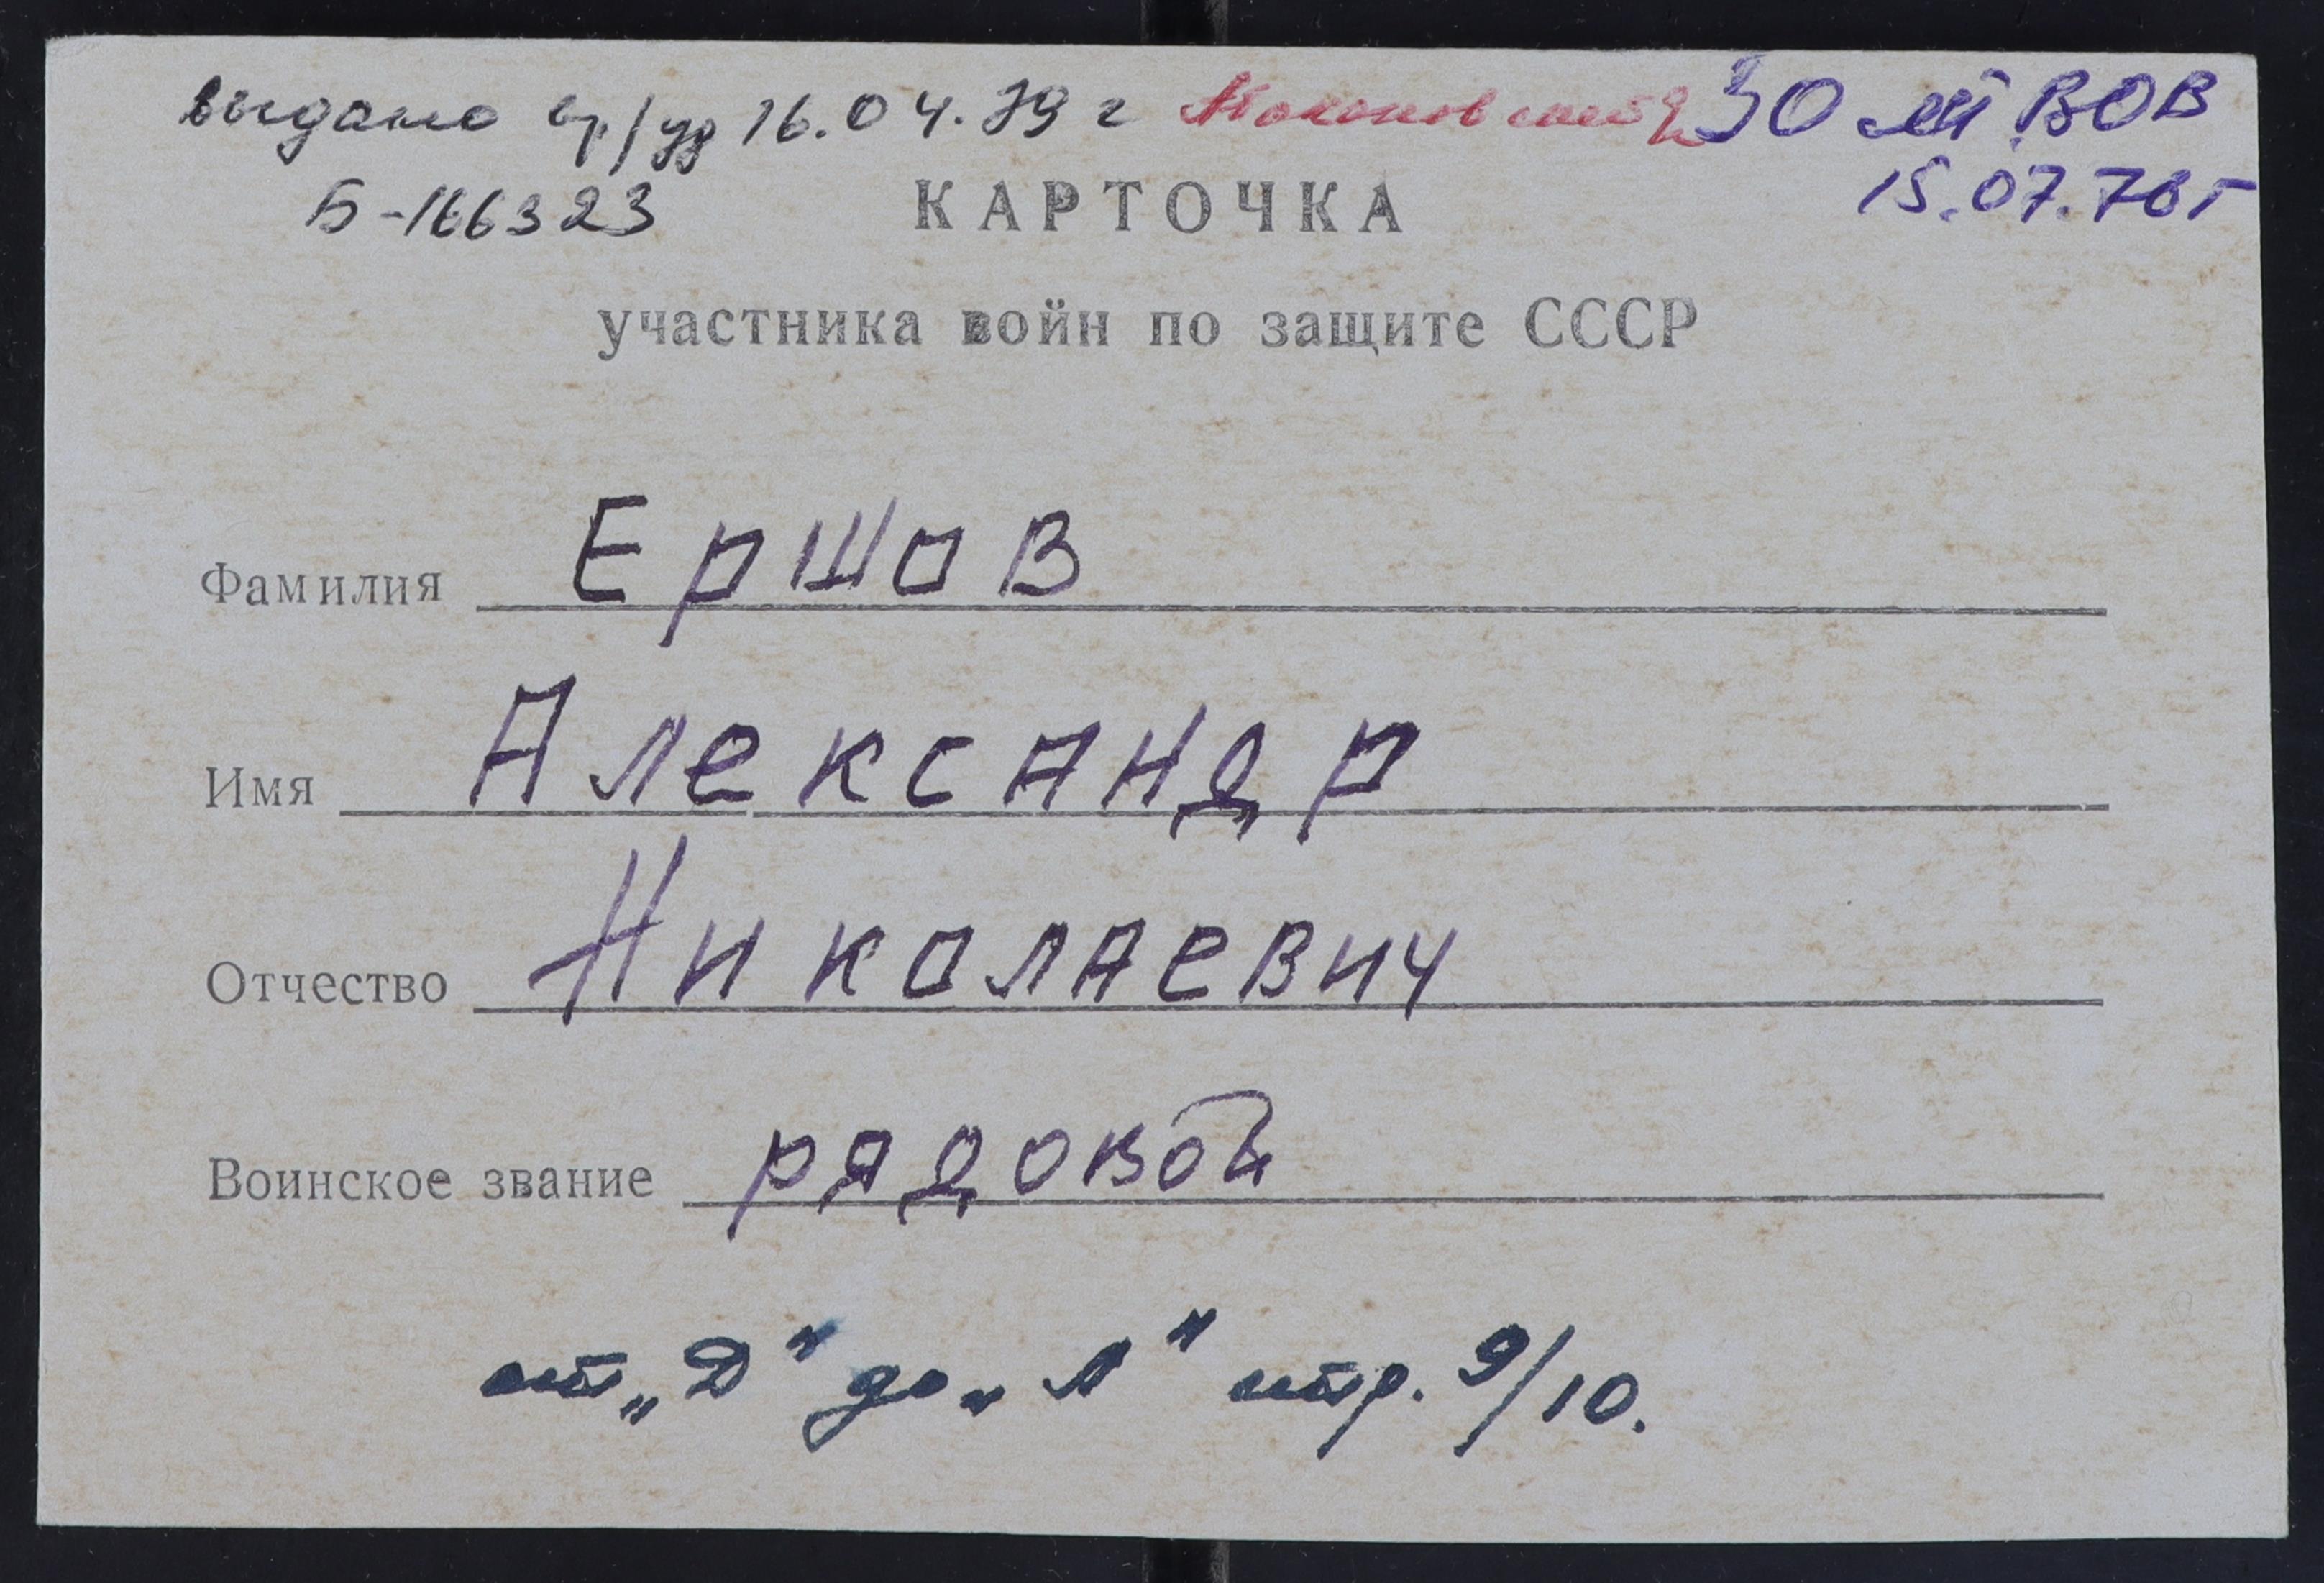 выдано 16.04.79 г 30 лет ВОВ
Б-166323 КАРТОЧКА 15.07.76г
участника войн по защите СССР
Фамилия Ершов
Имя Александр
Отчество Николаевич
Воинское звание рядовой
от „Д" до „Л" стр. 9/10.